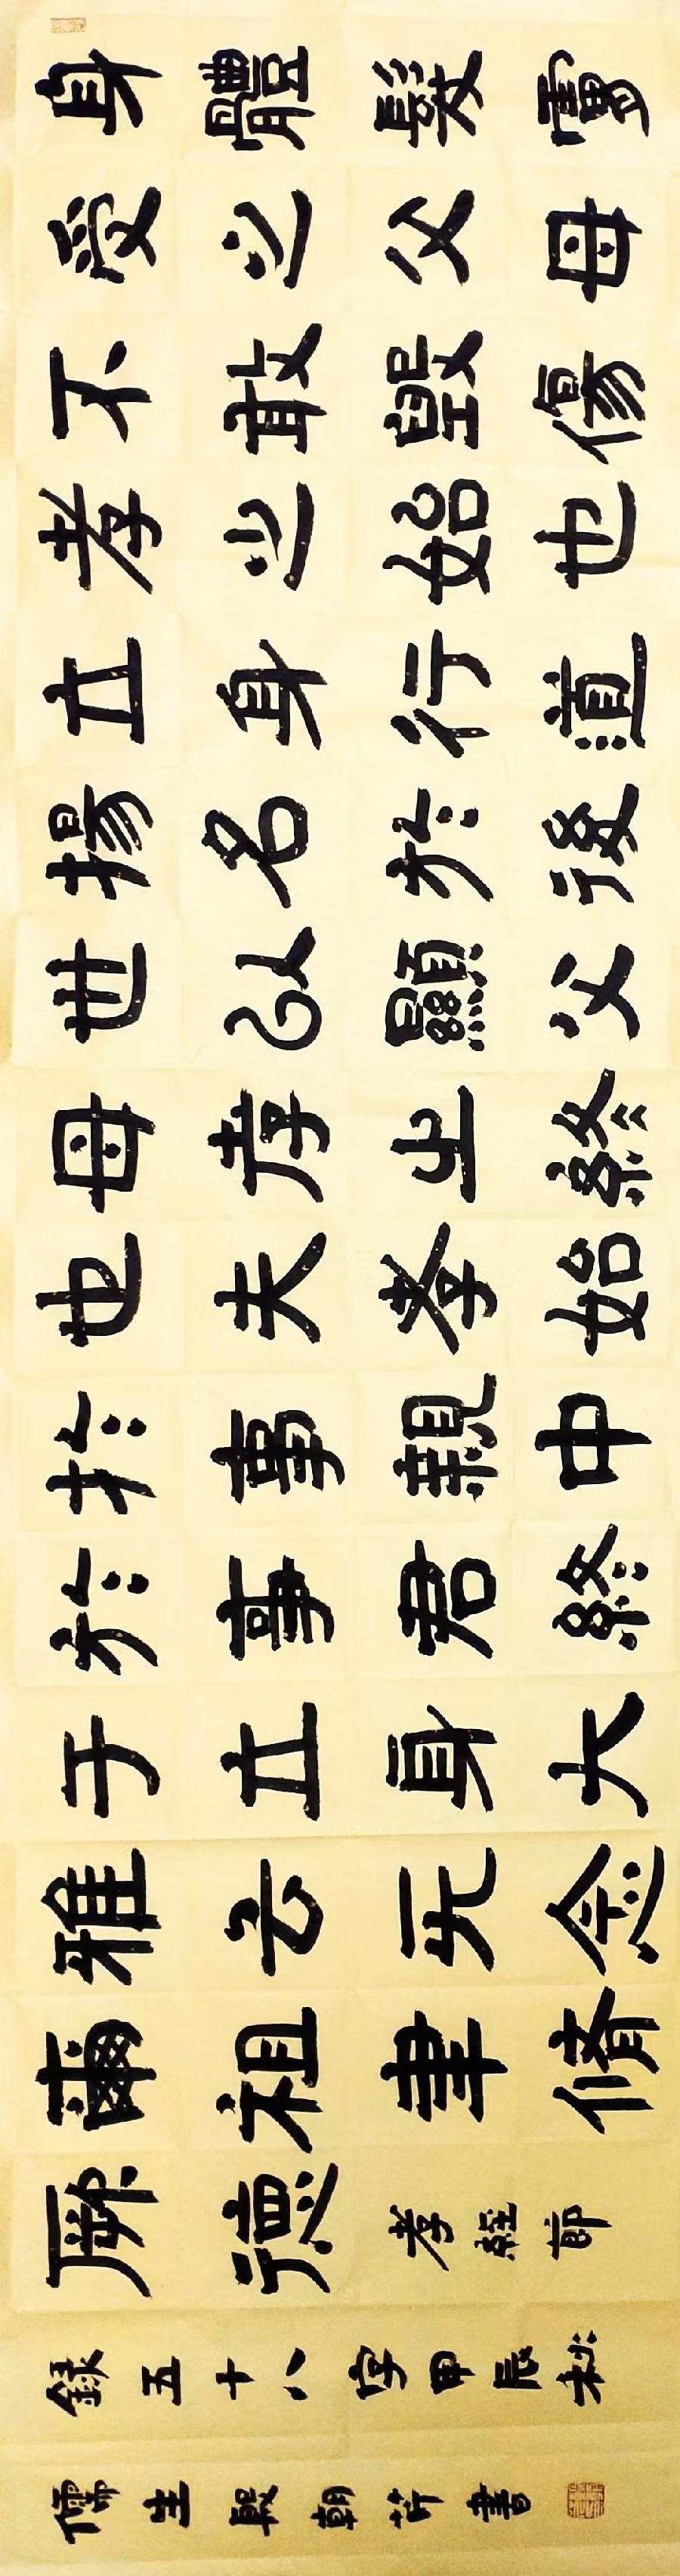 身體髮膚
受之父母
不敢毀傷
孝之始也
立身行道
揚名於後
世以顯父
母孝之終
也夫孝始
於事親中
於事君終
于立身大
雅云无念
爾祖聿脩
厥德孝經節
錄五十八字甲辰秋
儒生朝書